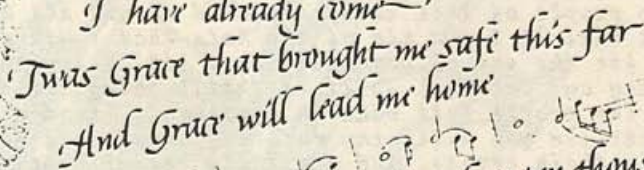 I have already come
'Twas Grace that brought me safe this far
And Grace will lead me home